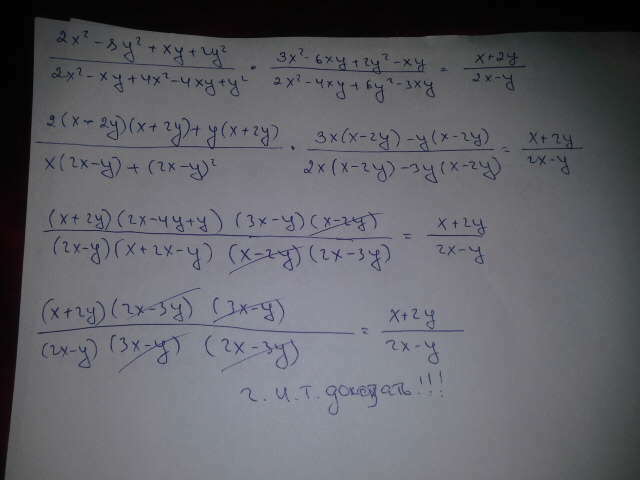 2x² - 8y² + xy + 2y² / 2x² - xy + 4x² - 4xy + y² · 3x² - 6xy + 2y² - xy / 2x² - 4xy + 6y² - 3xy = x+2y / 2x-y
2(x-2y)(x+2y) + y(x+2y) / x(2x-y) + (2x-y)² · 3x(x-2y) - y(x-2y) / 2x(x-2y) - 3y(x-2y) = x+2y / 2x-y
(x+2y)(2x-4y+y) (3x-y)(x-2y) / (2x-y)(x+2x-y) (x-2y)(2x-3y) = x+2y / 2x-y
(x+2y)(2x-3y) (3x-y) / (2x-y)(3x-y) (2x-3y) = x+2y / 2x-y
ч. и. т. доказать!!!